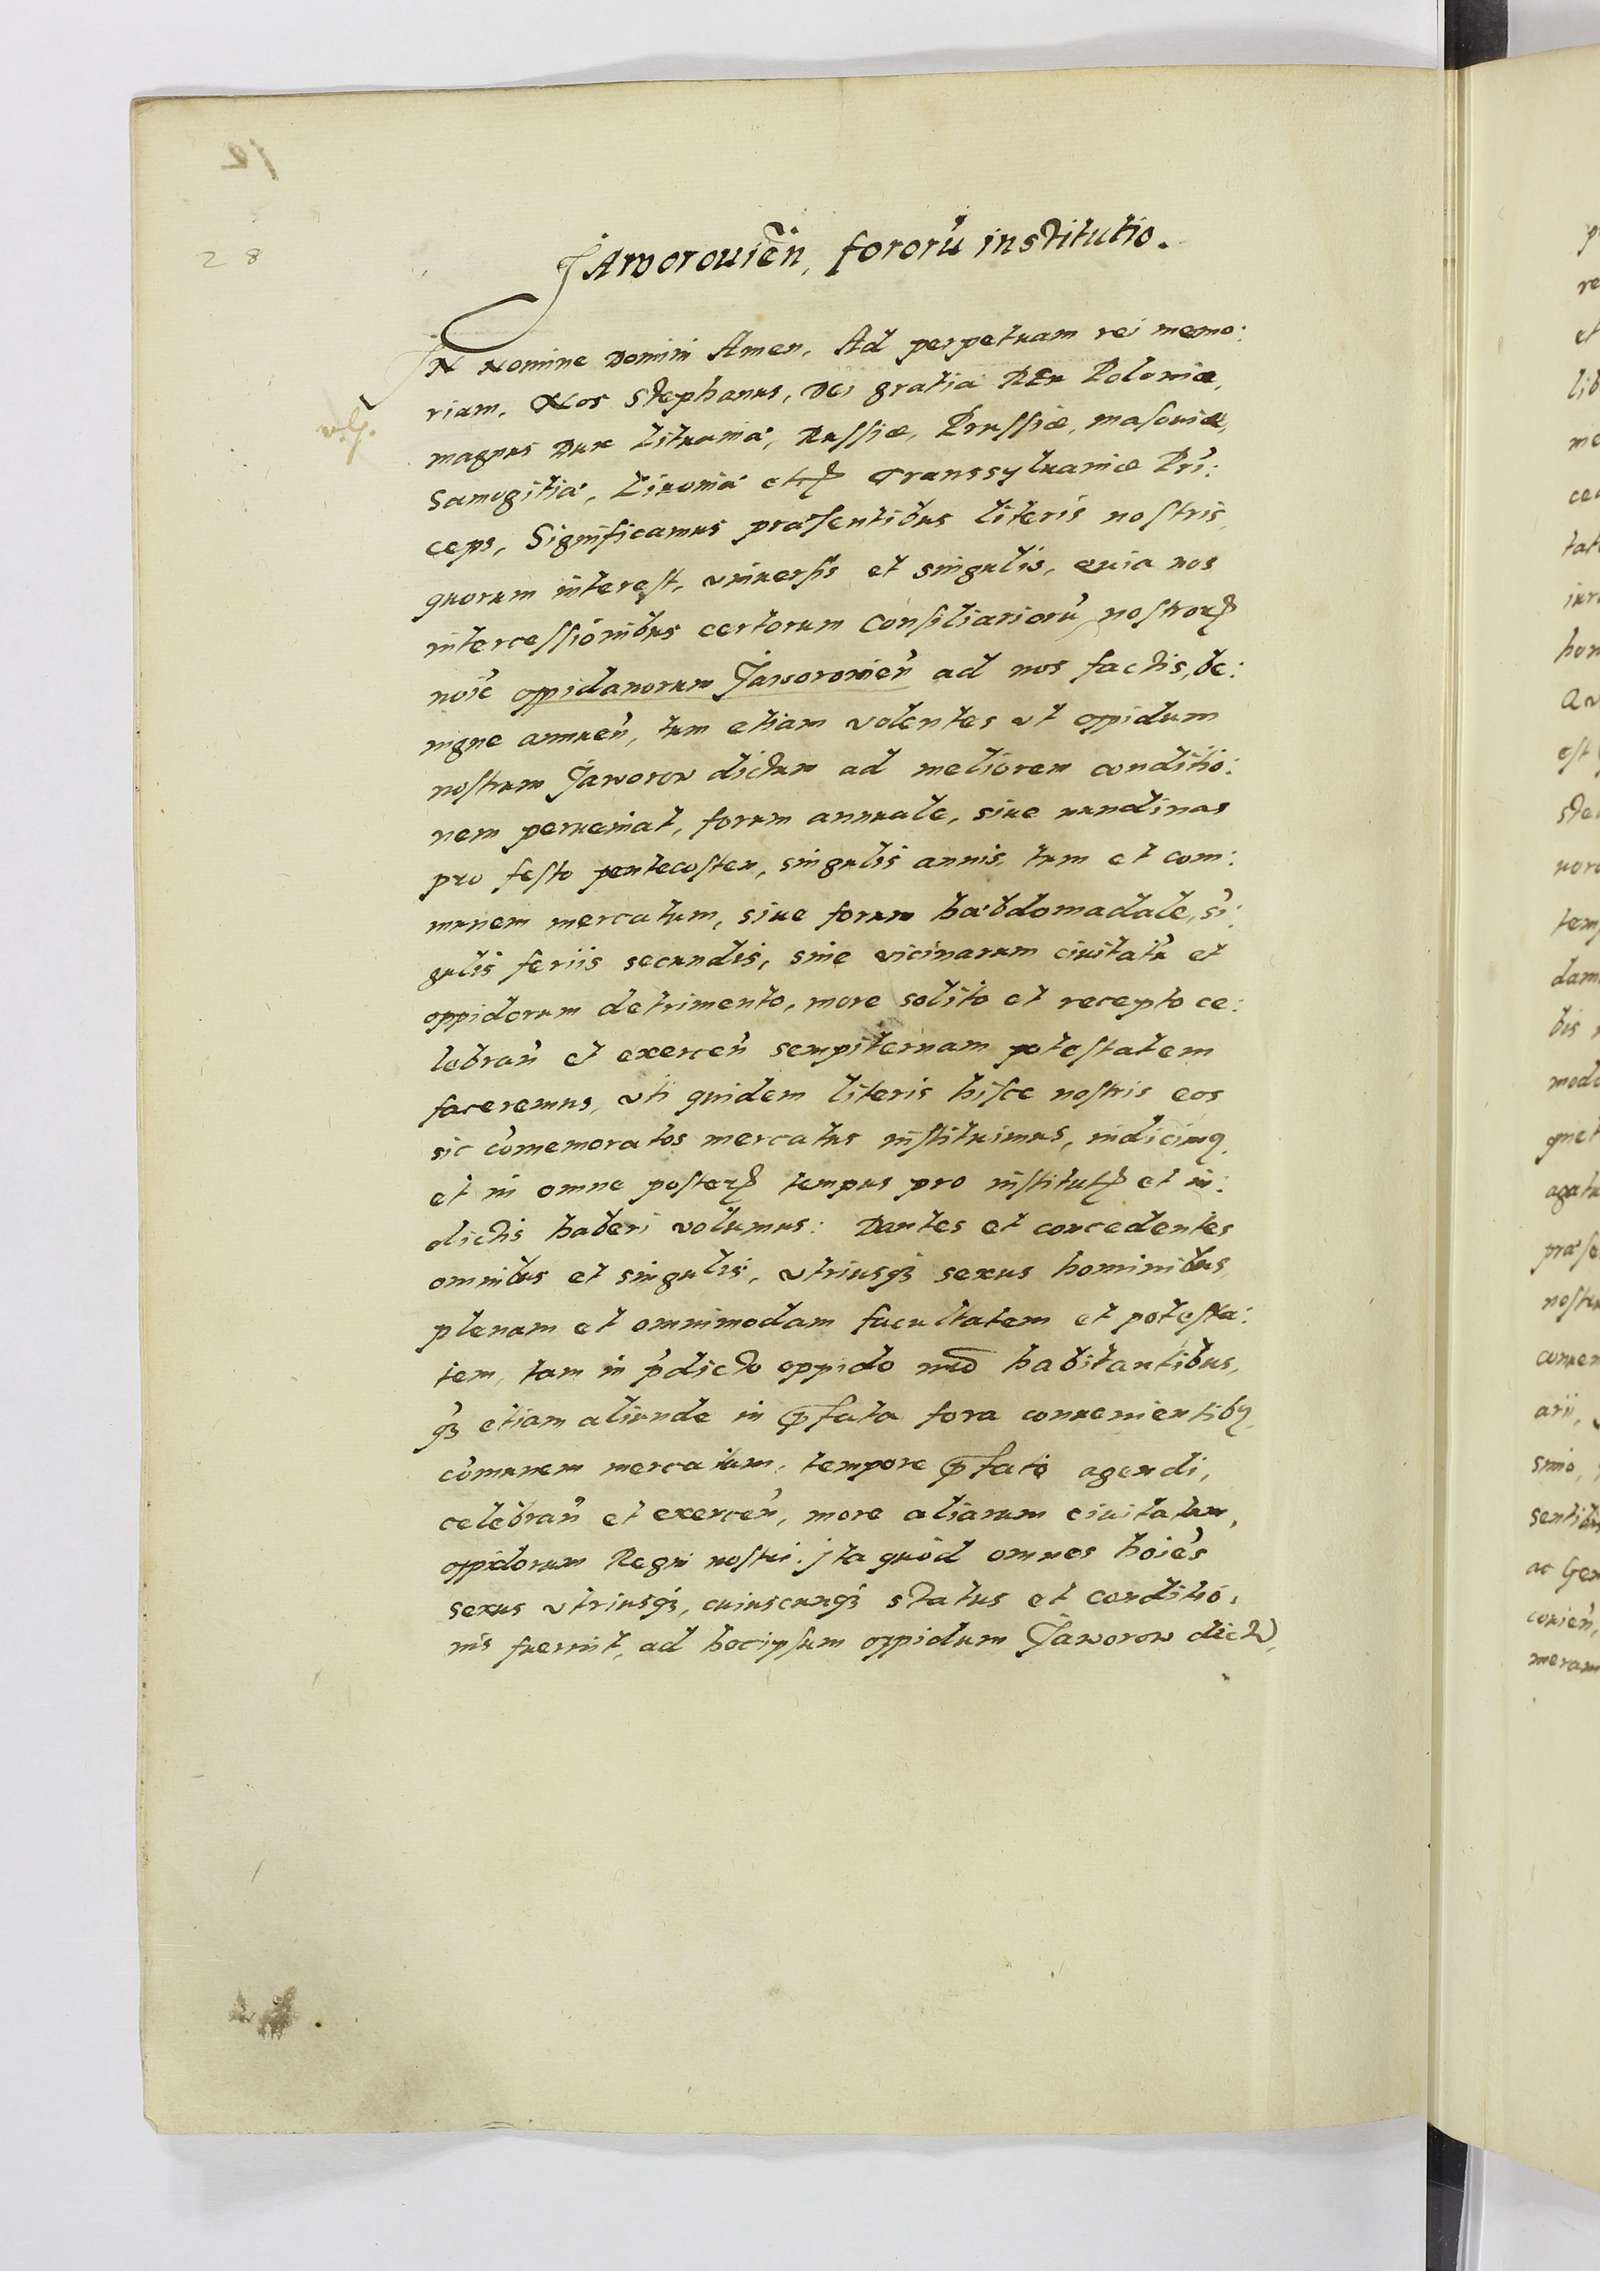 28
Jaworouien̄, fororū institutio.
In Nomine Domini Amen, Ad perpetuam rei memo:
riam. Nos Stephanus, Dei gratia REx Poloniæ,
magnus Dux Lituaniæ, Russiæ, Prussiæ, masouiæ,
Samogitiæ, Liuoniæ etcꝫ Transsyluaniæ Prī:
ceps, Significamus præsentibus literis nostris
quorum interest, vniuersis et singulis, quia nos
intercessionibus certorum Consiliariorū nostroꝝ
noīe oppidanorum Jaworouien̄ ad nos factis, be:
nigne annuen̄, tum etiam volentes vt oppidum
nostrum Jaworow dictum ad meliorem conditio:
nem perueniat, forum annuale, siue nundinas
pro festo pentecosten, singulis annis, tum et com:
munem mercatum, siue forum hæbdomadale, sī:
gulis feriis secundis, sine vicinarum ciuitatū et
oppidorum detrimento, more solito et recepto ce:
lebran̄ et exercen̄ sempiternam potestatem
faceremus, vti quidem literis hisce nostris eos
sic cōmemoratos mercatus instituimus, indicimꝰq,
et in omne posteꝝ tempus pro institutꝭ et in:
dictis haberi volumus: Dantes et concedentes
omnibus et singulis, vtriusqꝫ sexus hominibus,
plenam et omnimodam facultatem et potesta:
tem, tam in p̄dicto oppido nr̄o habitantibus,
qꝫ etiam aliunde in p̄fata fora conuenientibꝰ,
cōmunem mercatum, tempore p̄fato agendi,
celebran̄ et exercen̄, more aliarum ciuitatum,
oppidorum Regni nostri. Jta quòd omnes hoīes
sexus vtriusqꝫ, cuiuscunqꝫ status et conditio:
nis fuerint, ad hocipsum oppidum Jaworow dictū,